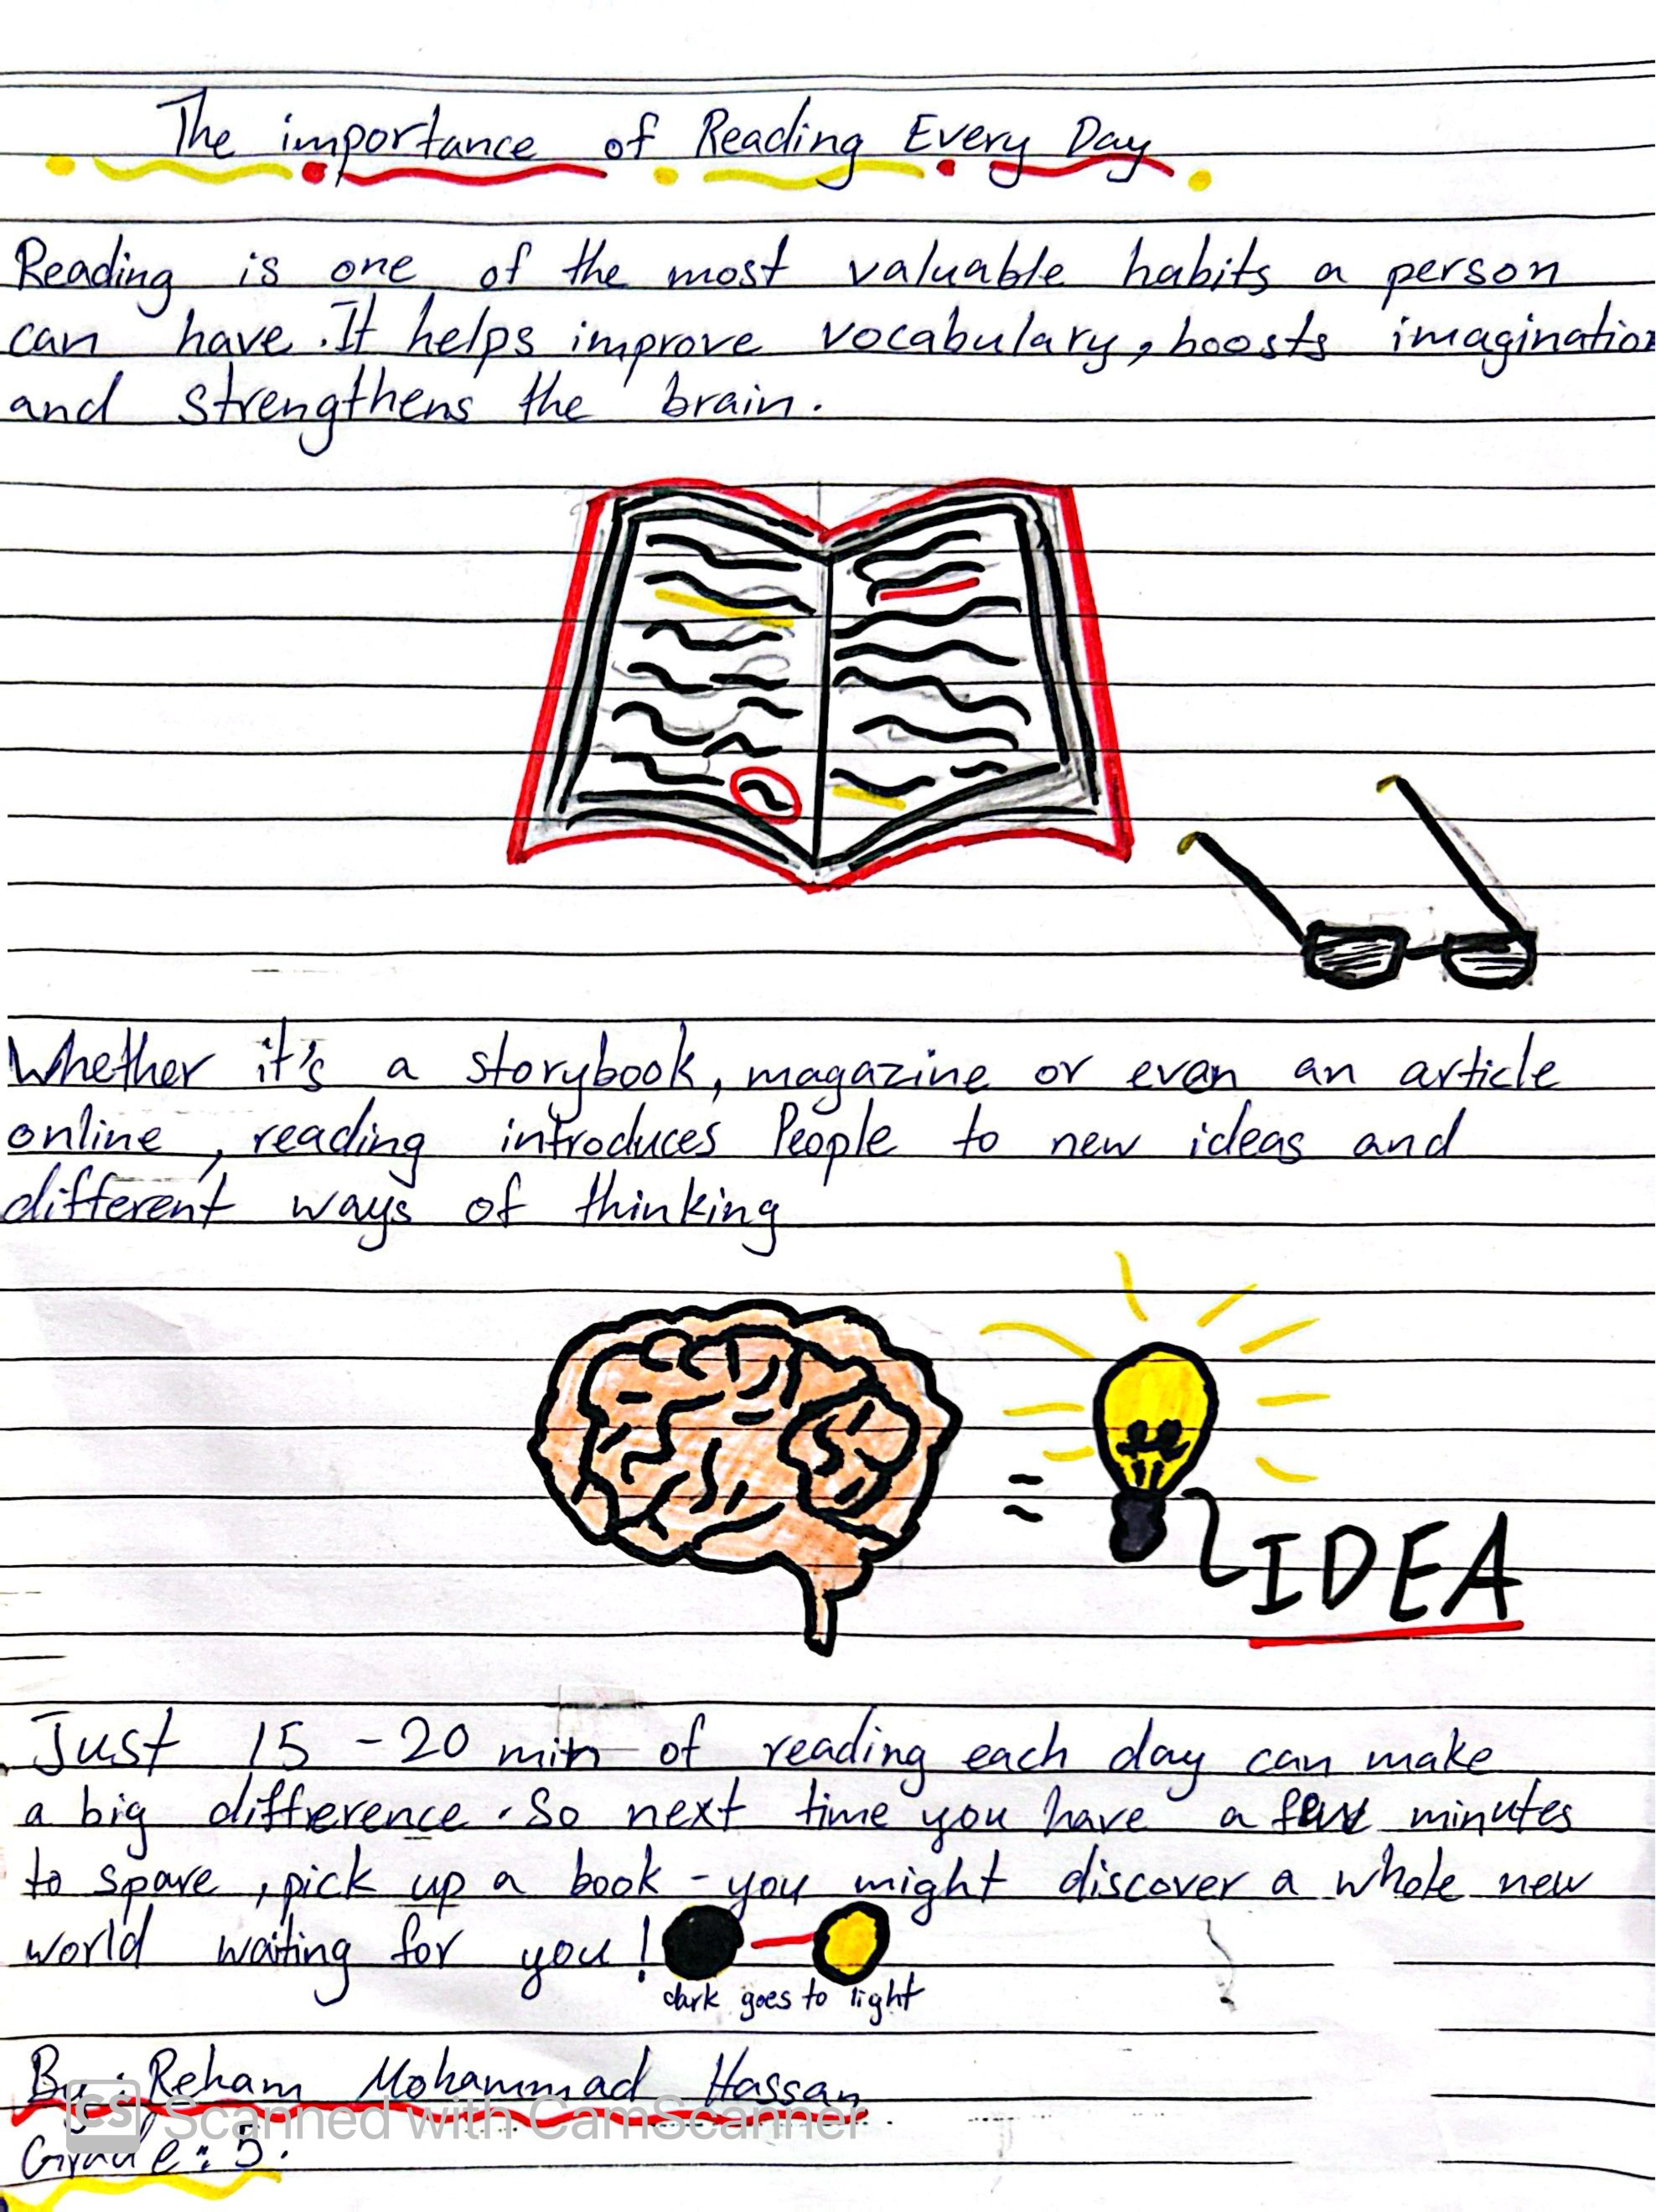 The importance of Reading Every Day
Reading is one of the most valuable habits a person
can have. It helps improve vocabulary, boosts imagination
and strengthens the brain.
Whether it's a storybook, magazine or even an article
online, reading introduces People to new ideas and
different ways of thinking
=
IDEA
Just 15 - 20 min of reading each day can make
a big diffrerence. So next time you have a few minutes
to spare, pick up a book - you might discover a whole new
world waiting for you!
dark goes to light
By: Reham Mohammad Hassan
CS Scanned with CamScanner
Grade: 5.